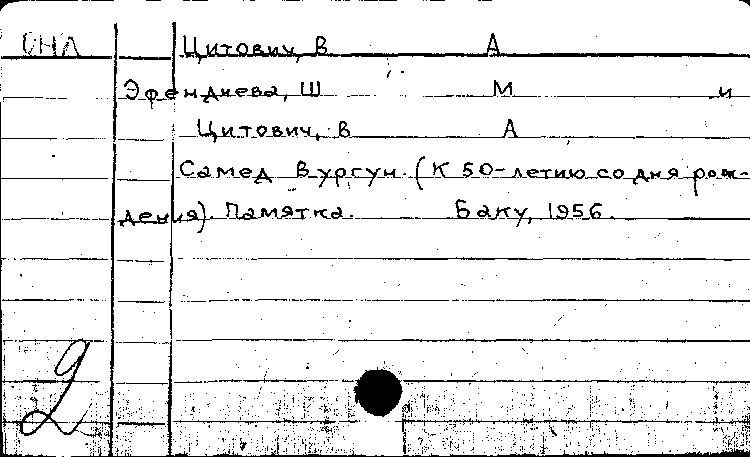 ОНЛ Цитович, В А
Эфендиева, Ш М и
Цитович, В А
Самед Вургун. (К 50-летию со дня рож-
дения). Памятка. Баку, 1956.
2